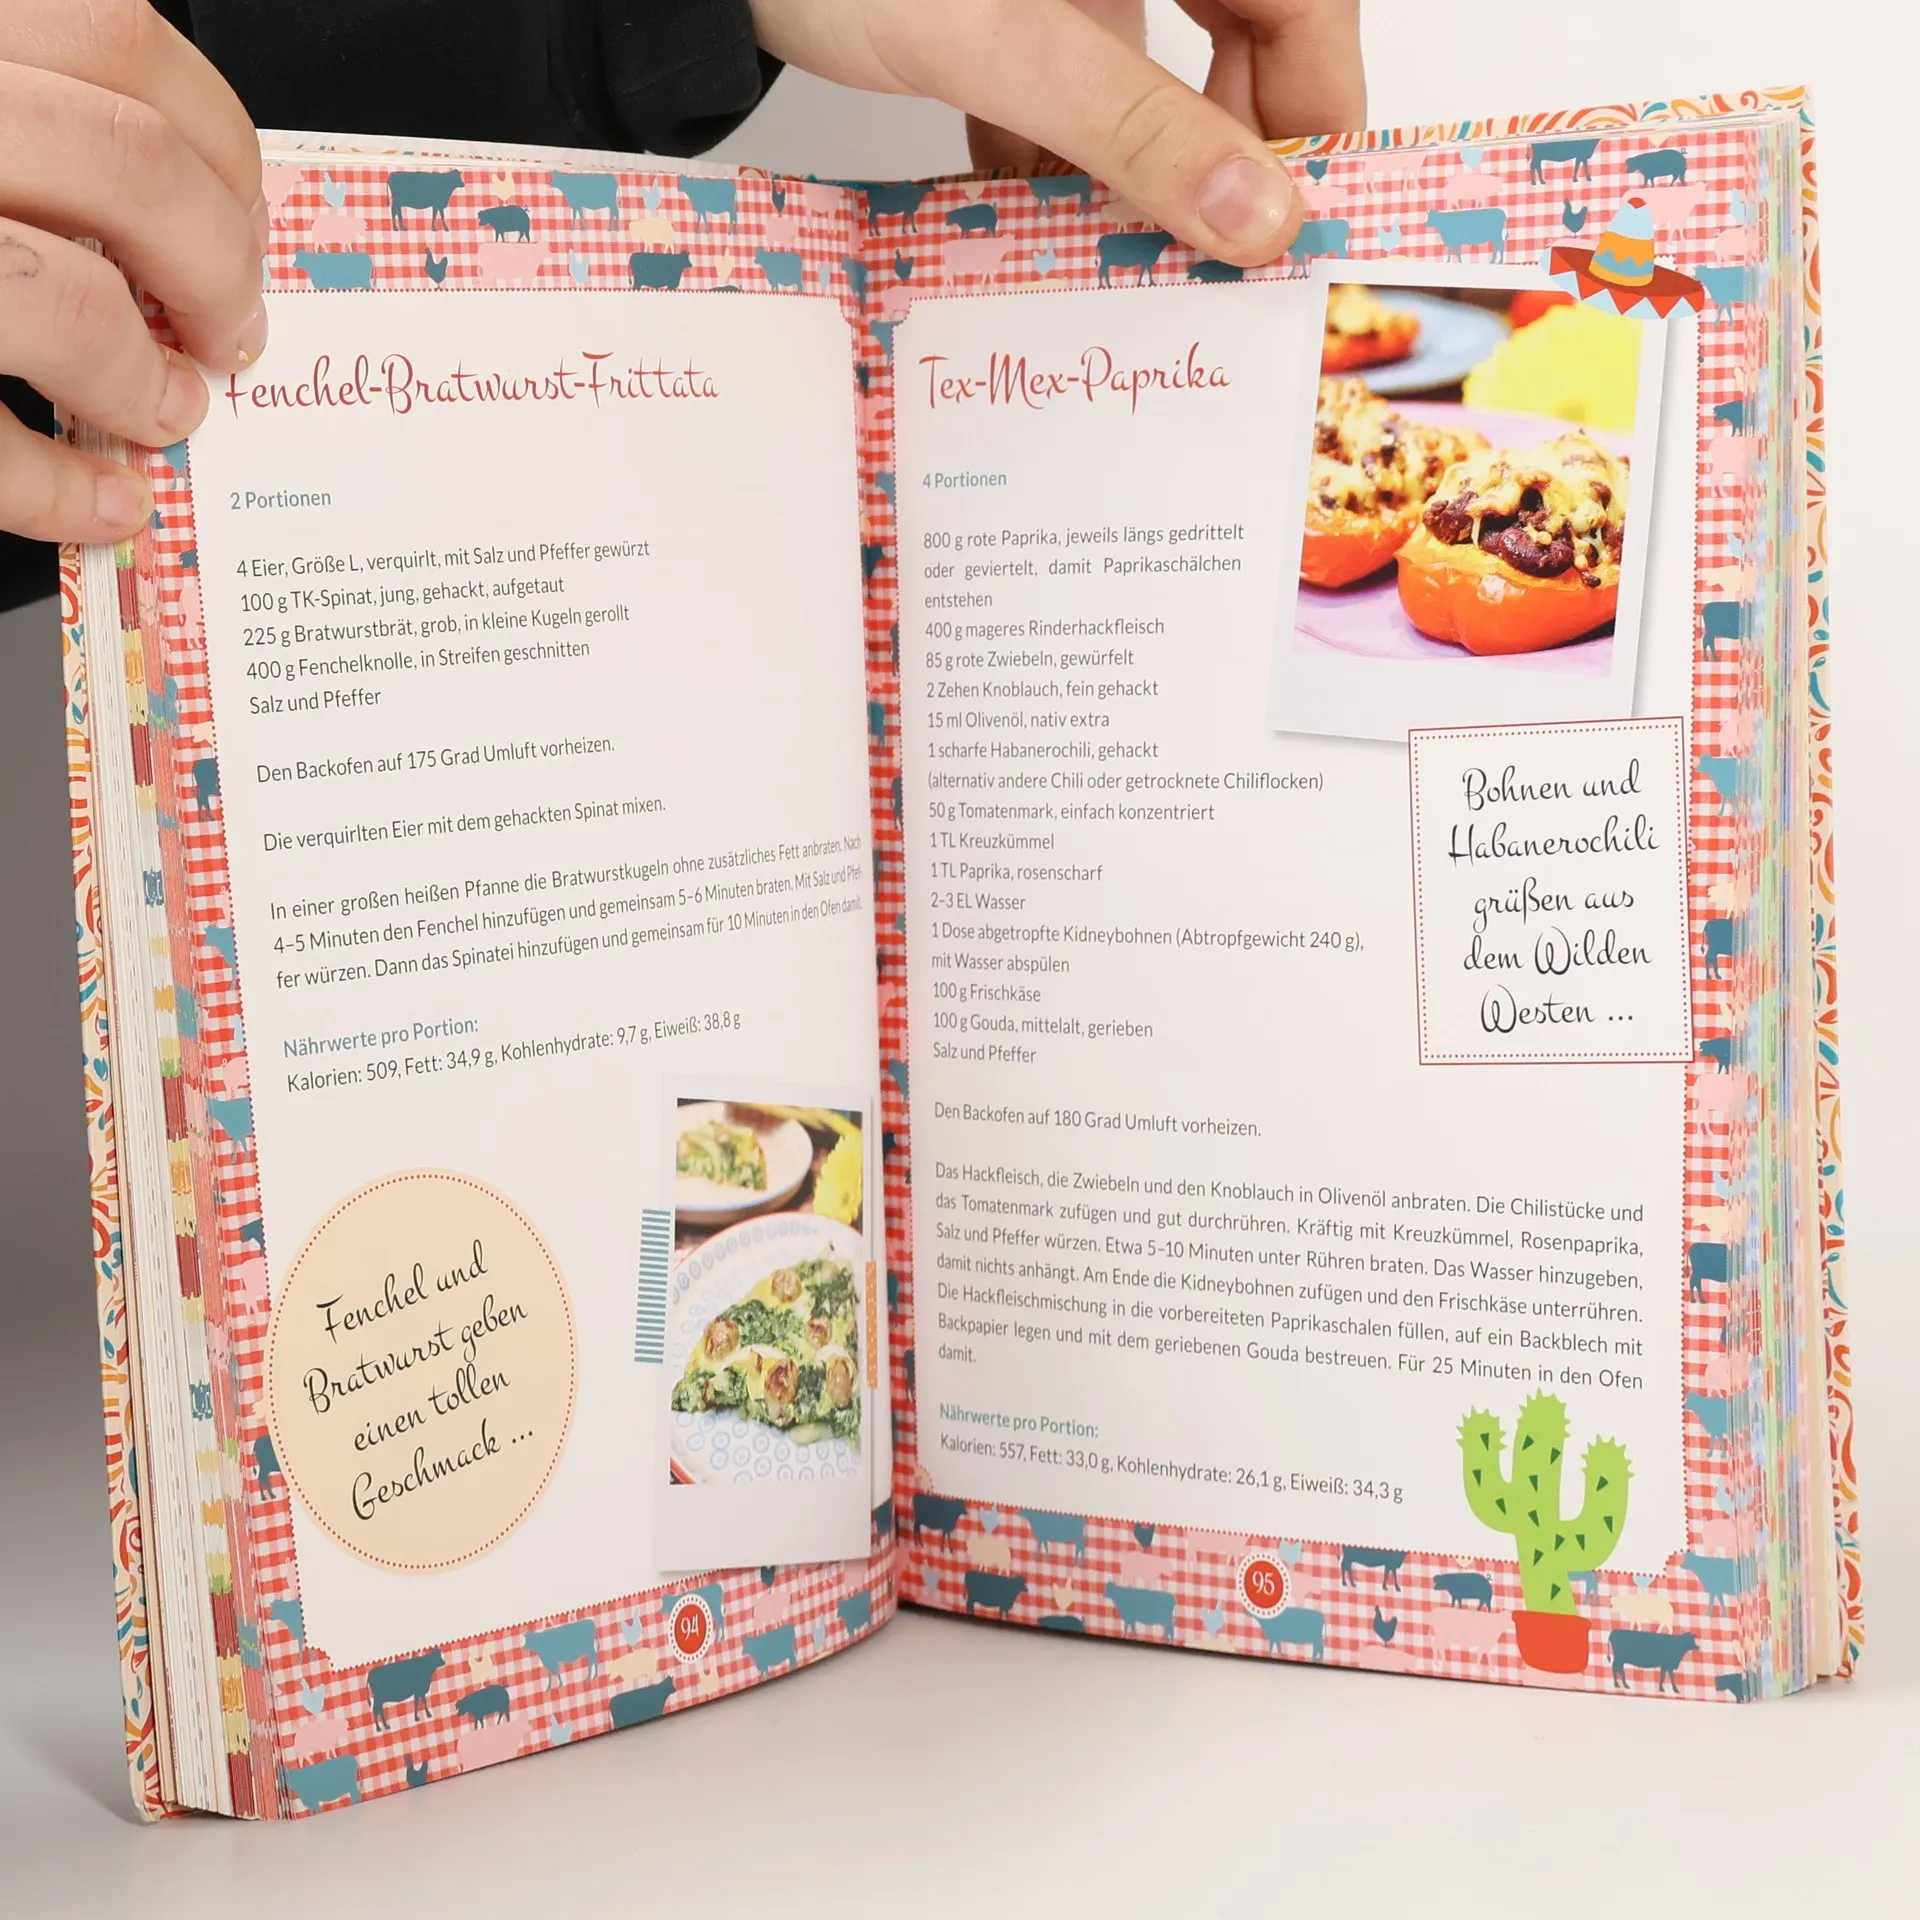 Fenchel-Bratwurst-Frittata
2 Portionen
4 Eier, Größe L, verquirlt, mit Salz und Pfeffer gewürzt
100 g TK-Spinat, jung, gehackt, aufgetaut
225 g Bratwurstbrät, grob, in kleine Kugeln gerollt
400 g Fenchelknolle, in Streifen geschnitten
Salz und Pfeffer
Den Backofen auf 175 Grad Umluft vorheizen.
Die verquirlten Eier mit dem gehackten Spinat mixen.
In einer großen heißen Pfanne die Bratwurstkugeln ohne zusätzliches Fett anbraten. Nach
4–5 Minuten den Fenchel hinzufügen und gemeinsam 5–6 Minuten braten. Mit Salz und Pfef-
fer würzen. Dann das Spinatei hinzufügen und gemeinsam für 10 Minuten in den Ofen damit.
Nährwerte pro Portion:
Kalorien: 509, Fett: 34,9 g, Kohlenhydrate: 9,7 g, Eiweiß: 38,8 g
Fenchel und
Bratwurst geben
einen tollen
Geschmack ...
94
Tex-Mex-Paprika
4 Portionen
800 g rote Paprika, jeweils längs gedrittelt
oder geviertelt, damit Paprikaschälchen
entstehen
400 g mageres Rinderhackfleisch
85 g rote Zwiebeln, gewürfelt
2 Zehen Knoblauch, fein gehackt
15 ml Olivenöl, nativ extra
1 scharfe Habanerochili, gehackt
(alternativ andere Chili oder getrocknete Chiliflocken)
50 g Tomatenmark, einfach konzentriert
1 TL Kreuzkümmel
1 TL Paprika, rosenscharf
2–3 EL Wasser
1 Dose abgetropfte Kidneybohnen (Abtropfgewicht 240 g),
mit Wasser abspülen
100 g Frischkäse
100 g Gouda, mittelalt, gerieben
Salz und Pfeffer
Bohnen und
Habanerochili
grüßen aus
dem Wilden
Westen ...
Den Backofen auf 180 Grad Umluft vorheizen.
Das Hackfleisch, die Zwiebeln und den Knoblauch in Olivenöl anbraten. Die Chilistücke und
das Tomatenmark zufügen und gut durchrühren. Kräftig mit Kreuzkümmel, Rosenpaprika,
Salz und Pfeffer würzen. Etwa 5–10 Minuten unter Rühren braten. Das Wasser hinzugeben,
damit nichts anhängt. Am Ende die Kidneybohnen zufügen und den Frischkäse unterrühren.
Die Hackfleischmischung in die vorbereiteten Paprikaschalen füllen, auf ein Backblech mit
Backpapier legen und mit dem geriebenen Gouda bestreuen. Für 25 Minuten in den Ofen
damit.
Nährwerte pro Portion:
Kalorien: 557, Fett: 33,0 g, Kohlenhydrate: 26,1 g, Eiweiß: 34,3 g
95